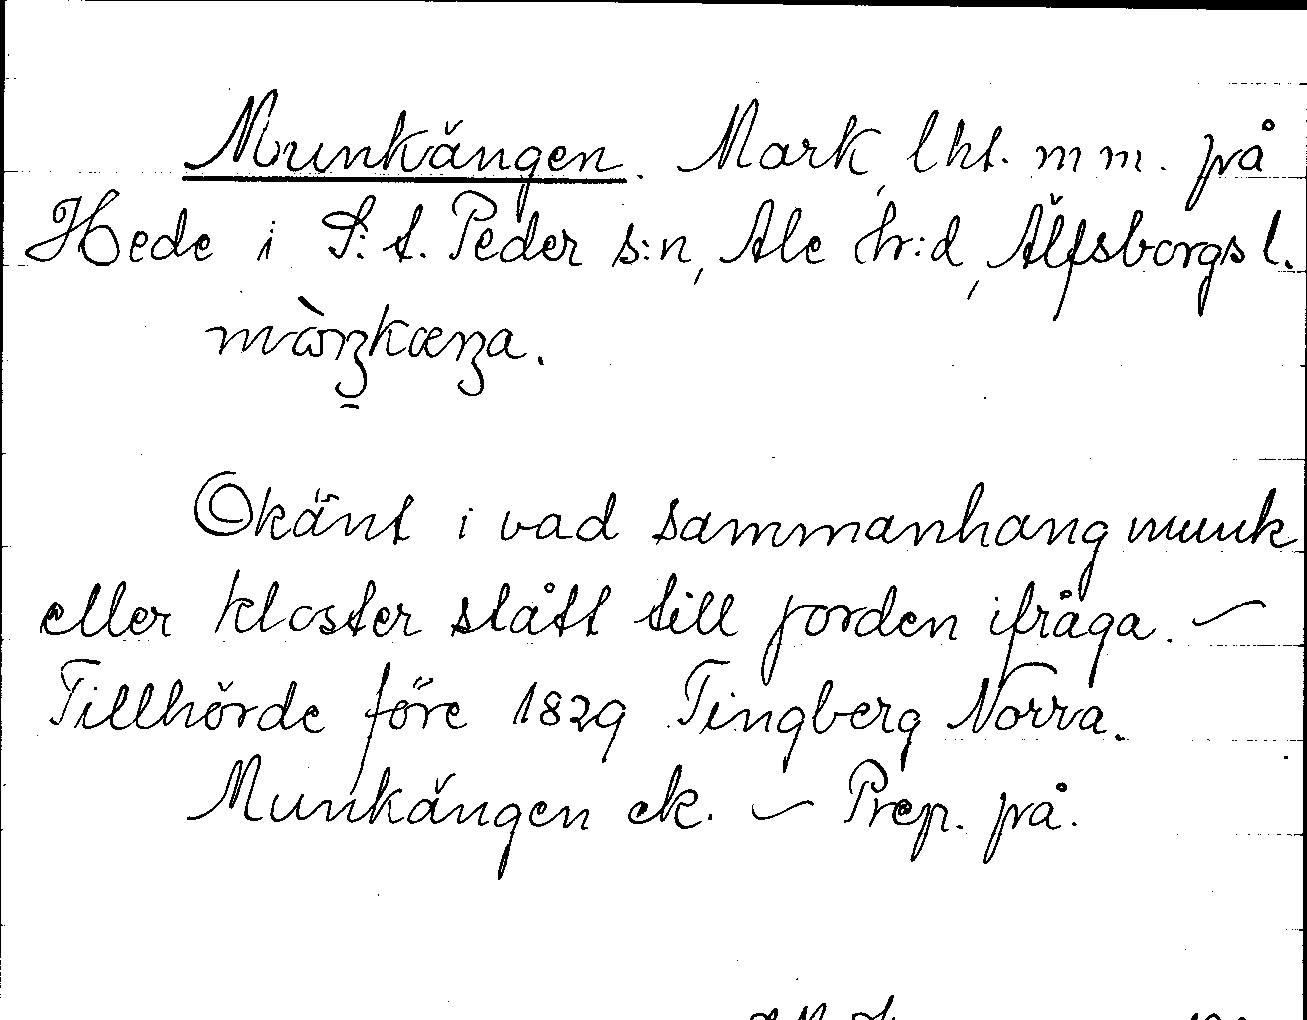 Munkängen. Mark, lht. m m. på
Hede i S:t. Peder s:n, Ale hr:d, Älfsborgs l.
Okänt i vad sammanhang munk
eller kloster stått till jorden ifråga. –
Tillhörde före 1829 Tingberg Norra.
Munkängen ek. – Prep. på.